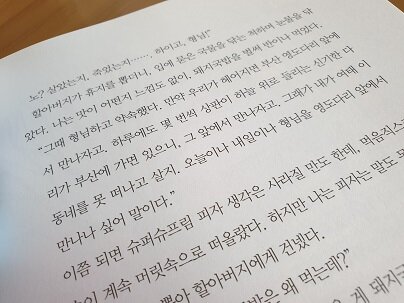 노? 살았는지, 죽었는지……, 하이고, 형님!"
할아버지가 휴지를 뽑더니, 입에 묻은 국물을 닦는 척하며 눈물을 닦
았다. 나는 맛이 어떤지 느낌도 없이, 돼지국밥을 벌써 반이나 먹었다.
"그때 형님하고 약속했다. 만약 우리가 헤어지면 부산 영도다리 앞에
서 만나자고. 하루에도 몇 번씩 상판이 하늘 위로 들리는 신기한 다
리가 부산에 가면 있으니, 그 앞에서 만나자고. 그래가 내가 여태 이
동네를 못 떠나고 살지. 오늘이나 내일이나 형님을 영도다리 앞에서
만나나 싶어 말이다."
이쯤 되면 슈퍼슈프림 피자 생각은 사라질 만도 한데, 먹음직스
계속 머릿속으로 떠올랐다. 하지만 나는 피자는 말도
뽑아 할아버지에게 건넸다.
은 왜 먹는데?"
게 돼지국